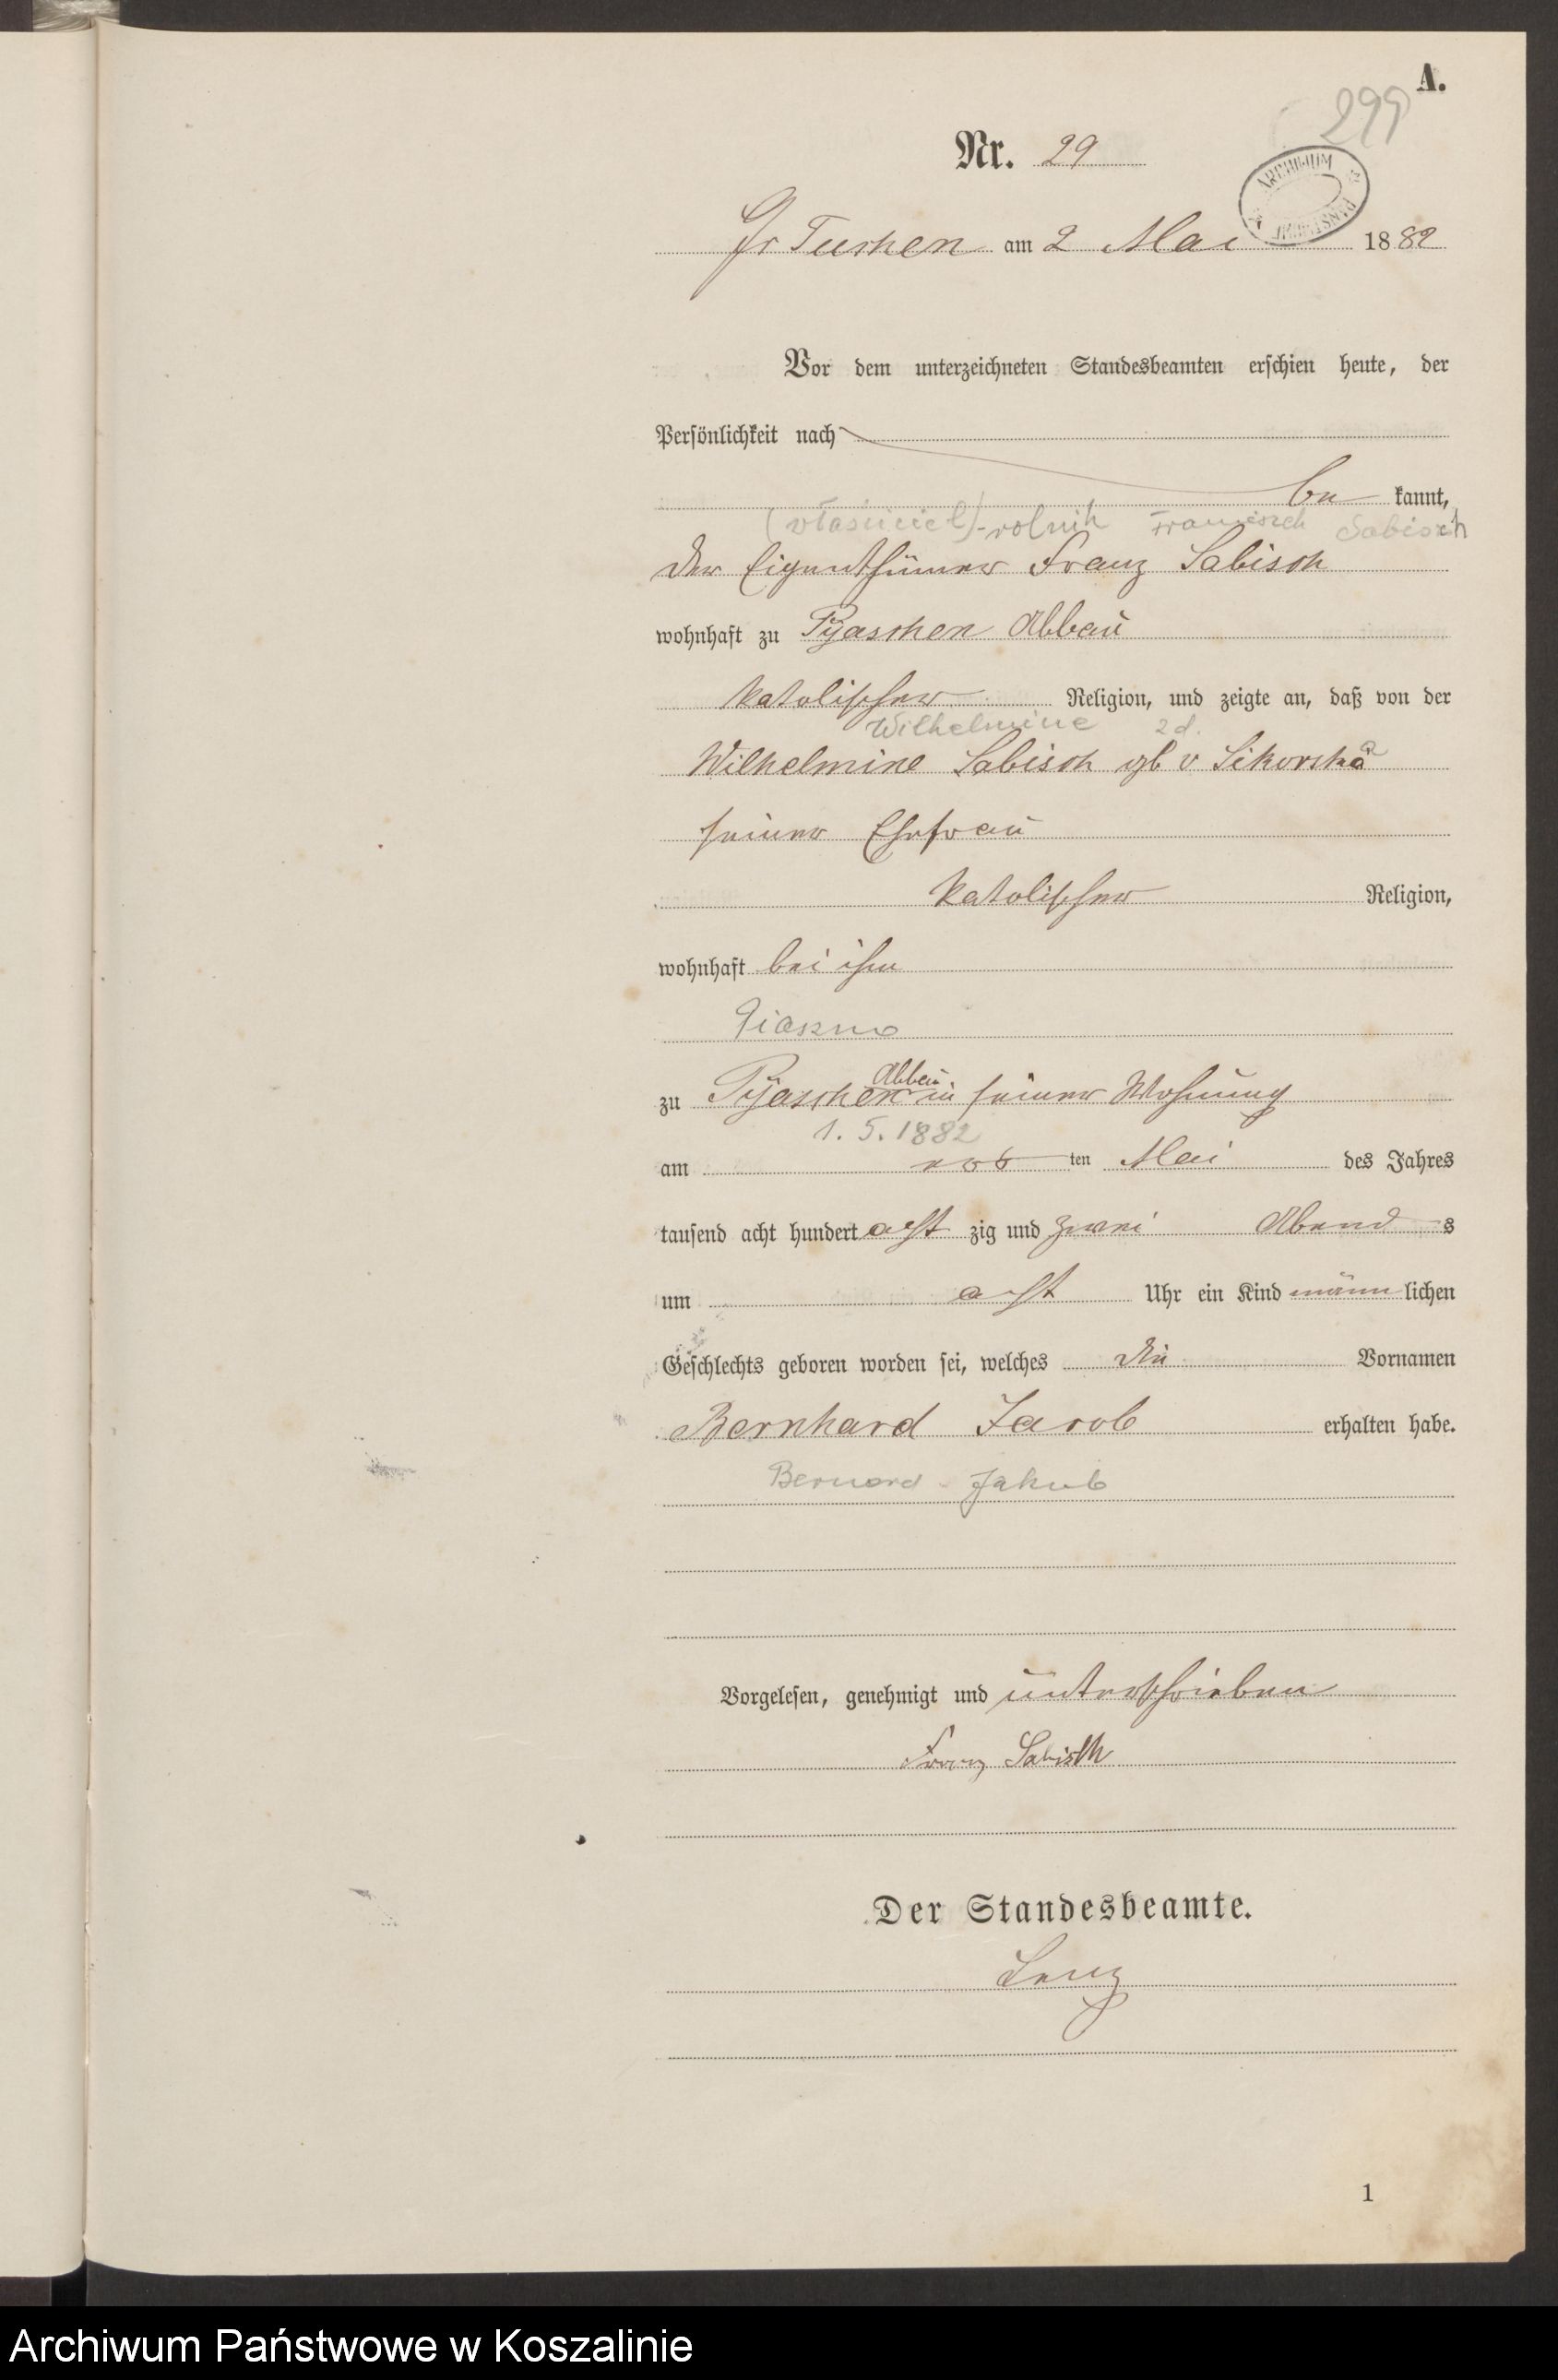 A.
299
Nr. 29
ARCHIWUM PAŃSTWOWE
Gr Tuchen am 2 Mai 1882
Vor dem unterzeichneten Standesbeamten erschien heute, der
Persönlichkeit nach
be kannt,
(właściciel)-rolnik Franciszek Sabisch
der Eigenthümer Franz Sabisch
wohnhaft zu Pyaschen Abbau
katolischer Religion, und zeigte an, daß von der
Wilhelmine zd.
Wilhelmine Sabisch geb v Sikorska
seiner Ehefrau
katolischer Religion,
wohnhaft bei ihm
Piaszno
zu Pyaschen Abbau in seiner Wohnung
1. 5. 1882
am ers ten Mai des Jahres
tausend acht hundert acht zig und zwei Abend s
um acht Uhr ein Kind männ lichen
Geschlechts geboren worden sei, welches die Vornamen
Bernhard Jacob erhalten habe.
Bernard Jakub
Vorgelesen, genehmigt und unterschrieben
Franz Sabisch
Der Standesbeamte.
Lenz
1
Archiwum Państwowe w Koszalinie